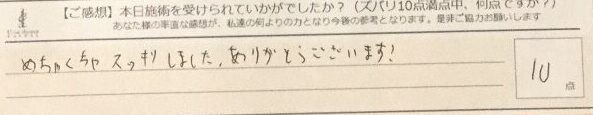 【ご感想】本日施術を受けられていかがでしたか？（ズバリ10点満点中、何点ですか？）
あなた様の率直な感想が、私達の何よりの力となり今後の参考となります。是非ご協力お願いします
めちゃくちゃスッキリしました、ありがとうございます！
10
点